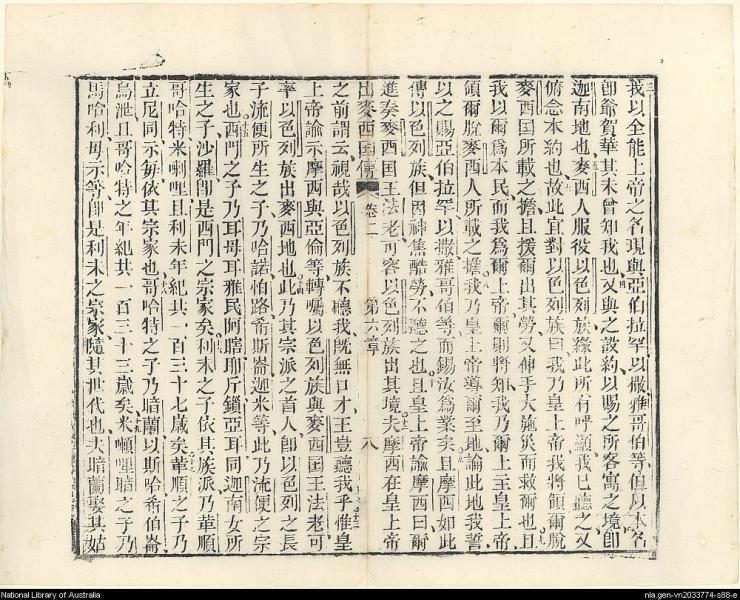 我以全能上帝之名現與亞伯拉罕以撒雅哥伯等但以本名
卽爺賀華其未曾知我也又與之設約以賜之所客寓之境卽
迦南地也麥西人服役以色列族緣此所有呼籲我已聽之又
俯念本約也故此宜對以色列族曰我乃皇上帝我將領爾脫
麥西国所載之擔且援爾出其勞又伸手大施災而救爾也且
我以爾爲本民而我爲爾上帝爾則將知我乃爾上主皇上帝
領爾脫麥西人所載之擔我乃皇上帝導爾至地論此地我誓
以之賜亞伯拉罕以撒雅哥伯等而錫汝爲業矣且摩西如此
傳以色列族但因神焦酷勞不聽之也且皇上帝諭摩西曰爾
進奏麥西国王法老可容以色列族出其境夫摩西在皇上帝
出麥西国傳 卷二 第六章 八
之前謂云視哉以色列族不聽我旣無口才王豈聽我乎惟皇
上帝諭示摩西與亞倫等轉囑以色列族與麥西国王法老可
率以色列族出麥西地也此乃其宗派之首人卽以色列之長
子流便所生之子乃哈諾怕路希斯崙迦米等此乃流便之宗
家也西門之子乃耳母耳雅民阿轄聊斤鎖亞耳同迦南女所
生之子沙羅卽是西門之宗家矣利未之子依其族派乃革順
哥哈特米喇哩且利未年紀共一百三十七歲矣革順之子乃
立尼同示每依其宗家也哥哈特之子乃暗蘭以斯哈希伯崙
烏泄且哥哈特之年紀共一百三十三歲矣米喇哩之子乃
馬哈利母示等卽是利未之宗家隨其世代也夫暗蘭娶其姑